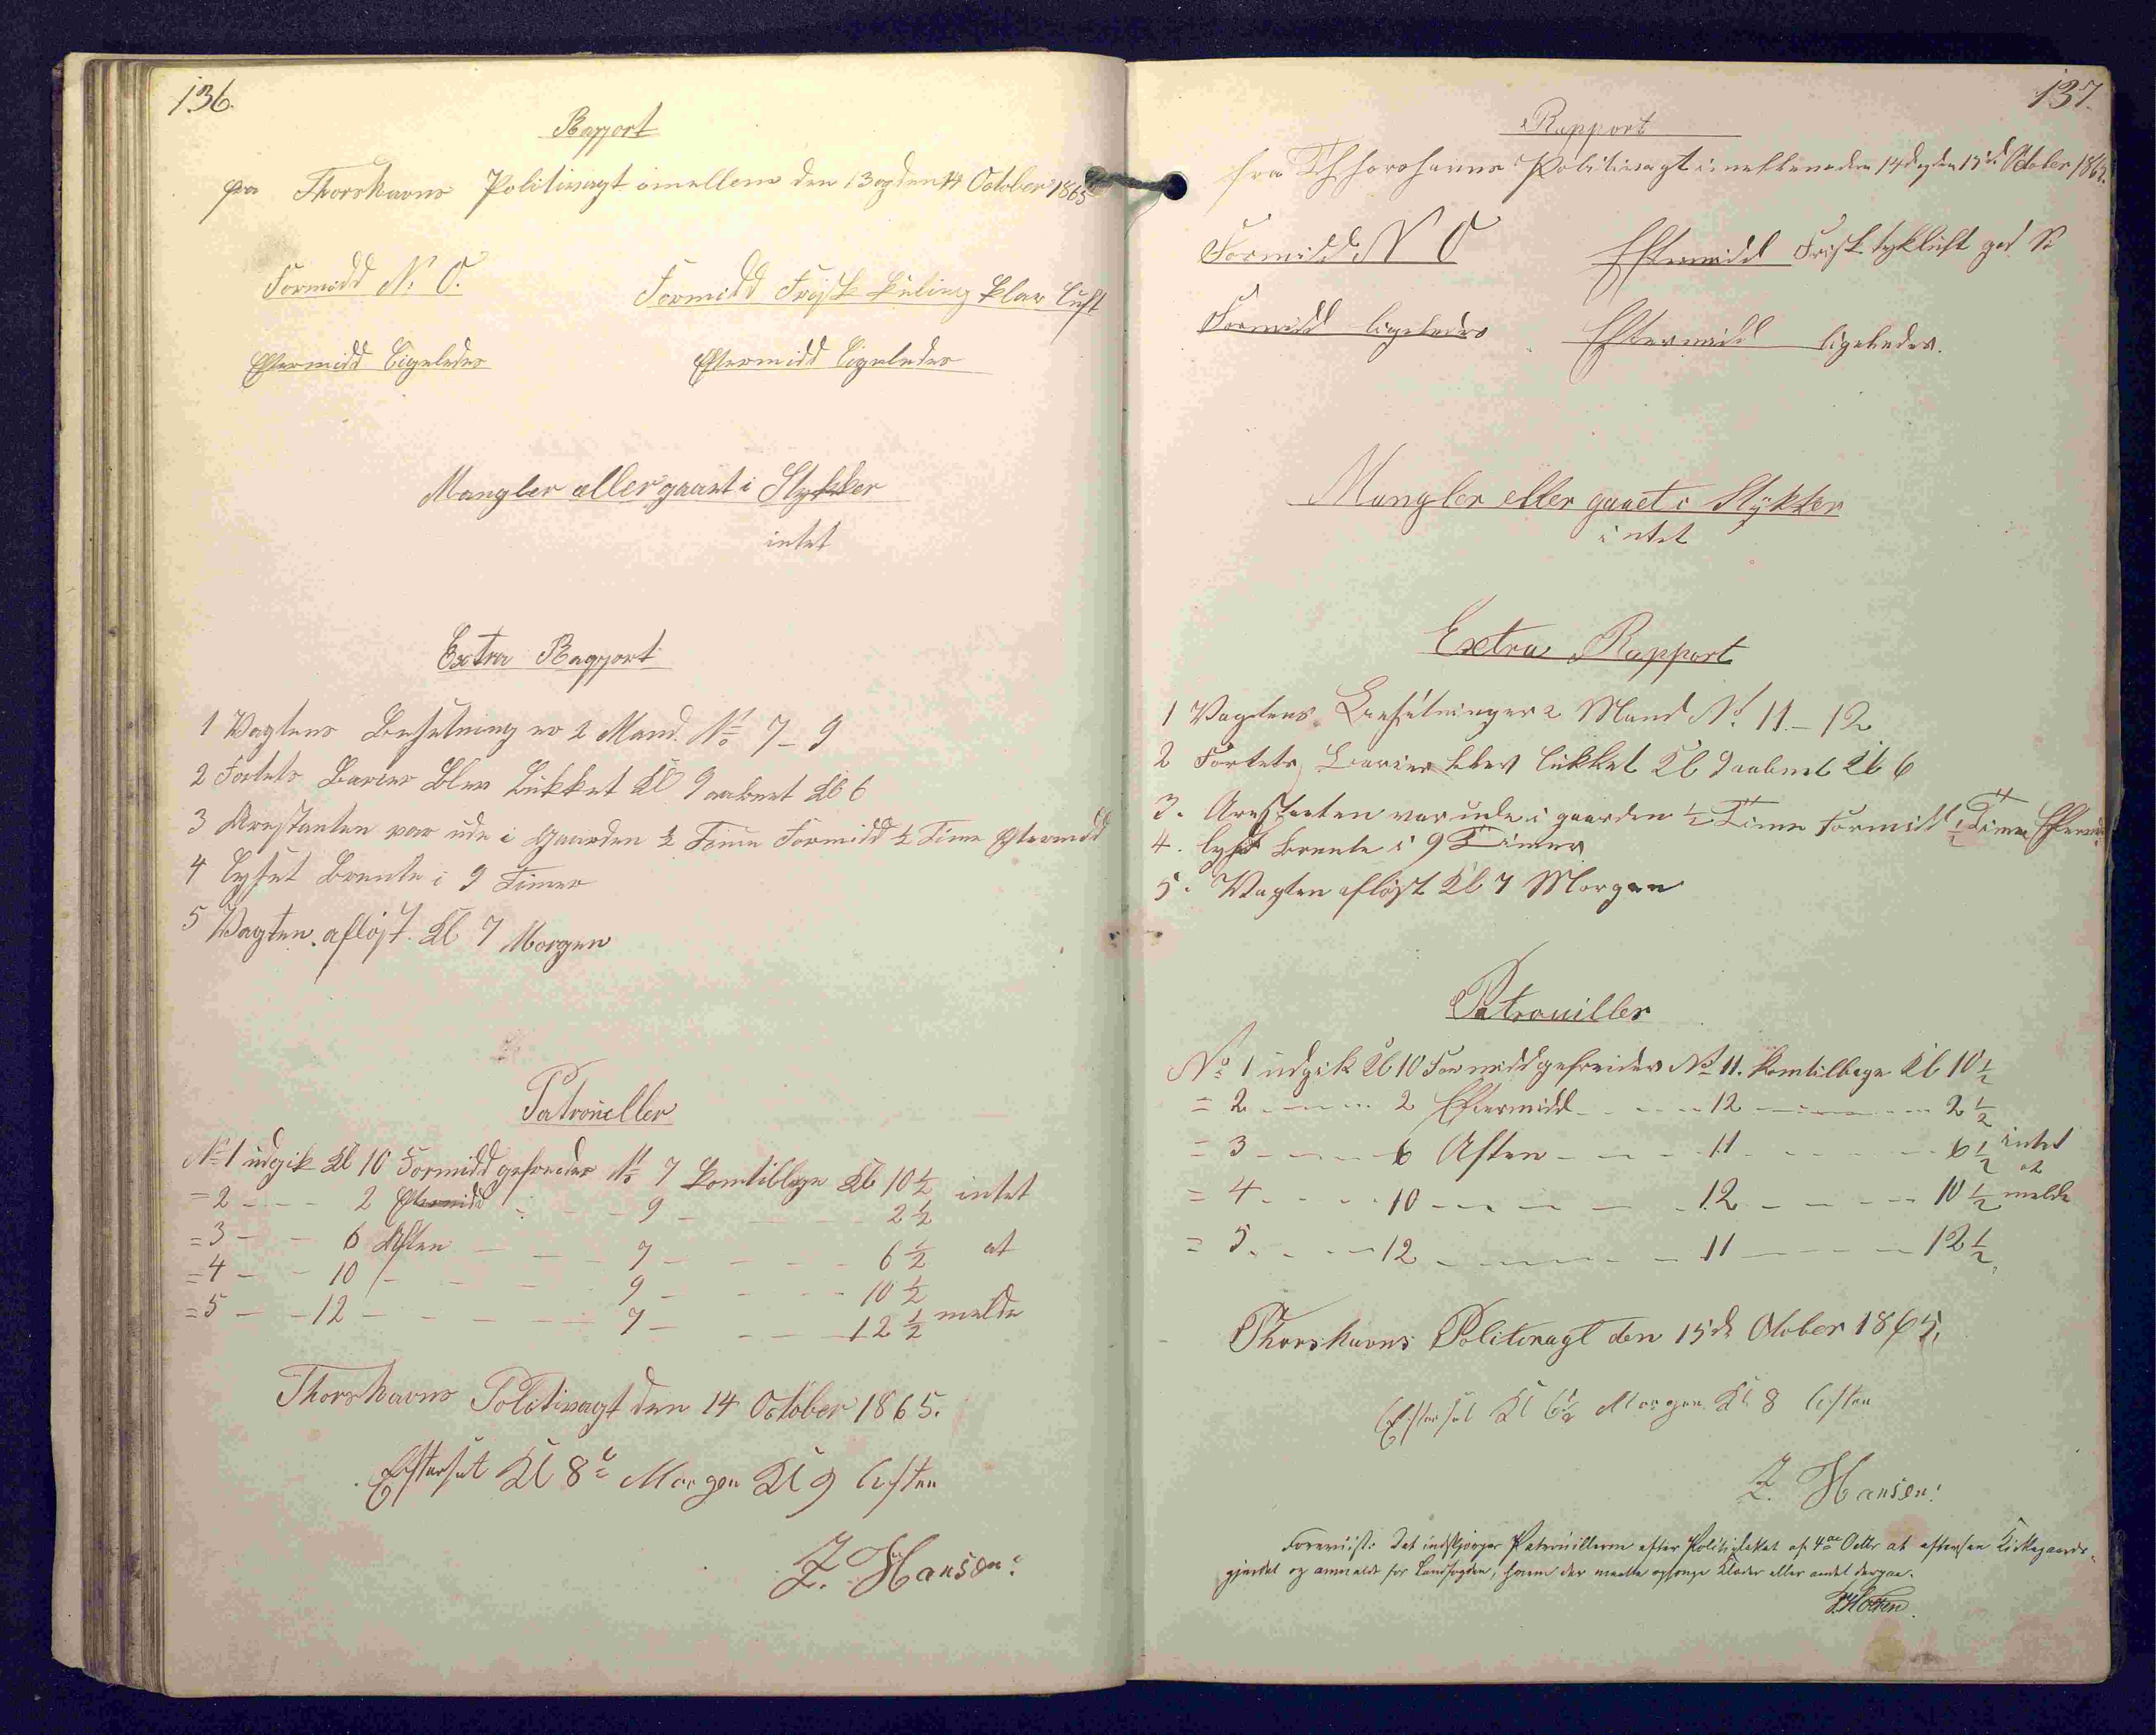 136.
Rapport
fra Thorshavns Politivagt imellem den 13 og den 14 October 1865
Formidd N. O. Formidd Frisk Kuling klar Luft
Eftermidd Ligeledes Eftermidd Ligeledes
Mangler eller gaaet i Stykker
intet
Extra Rapport
1 Vagtens Besetning er 2 Mand. No 7 - 9
2 Fortets Barier Blev Lukket Kl 9 aabnet Kl 6
3 Arrestanten var ude i Gaarden ½ Time Formidd ½ Time Eftermidd
4 Lyset Brente i 9 Timer
5 Vagten afløst Kl 7 Morgen
Patroueller
No 1 udgik Kl 10 Formidd gefreider No 7 komtilbage Kl 10½ intet
= 2 - - - 2 Eftermidd - - - 9 - - - 2½
= 3 - - 6 Aften - - - 7 - - - 6½ at
= 4 - - 10 - - - 9 - - - 10½
= 5 - - 12 - - - 7 - - - 12½ melde
Thorshavns Politivagt den 14 October 1865.
Efterset Kl 8 Morgen Kl 9 Aften
Z. Hansen
137.
Rapport
fra Thhorshavns Politivagt imellem den 14 d og den 15 d October 1865.
Formidd N O Eftermidd Frisk tyk luft
Formidd ligeledes Eftermidd ligeledes.
Mangler eller gaaet i Stykker
intet
Extra Rapport
1 Vagtens Besetning er 2 Mand No 11 - 12
2 Fortets Barier blev lukket Kl 9 aabnet Kl 6
3. Arestanten var ude i gaarden ½ Time Formidd ½ Time Eftermidd
4. lyset brente i 9 Timer
5. Vagten afløst Kl 7 Morgen
Patrouiller
No 1 udgik Kl 10 Formidd gefreider No 11. komtilbage Kl 10½
= 2 - - - 2 Eftermidd - - - 12 - - - 2½
= 3 - - - 6 Aften - - - 11 - - - 6½ intet
at
= 4 - - - 10 - - - 12 - - - 10½ melde
= 5. - - - 12 - - - 11 - - - 12½
Thorshavns Politivagt den 15 d October 1865.
Efterset Kl 6½ Morgen Kl 8 Aften
Z. Hansen
Foreviist. Det indskjærpes Patrouillerne efter Politiplakat af 4de Octbr at efterse Kirkegaards-
gjerdet og anmelde for Landfogden, hvem der maatte ophænge Klæder eller andet derpaa.